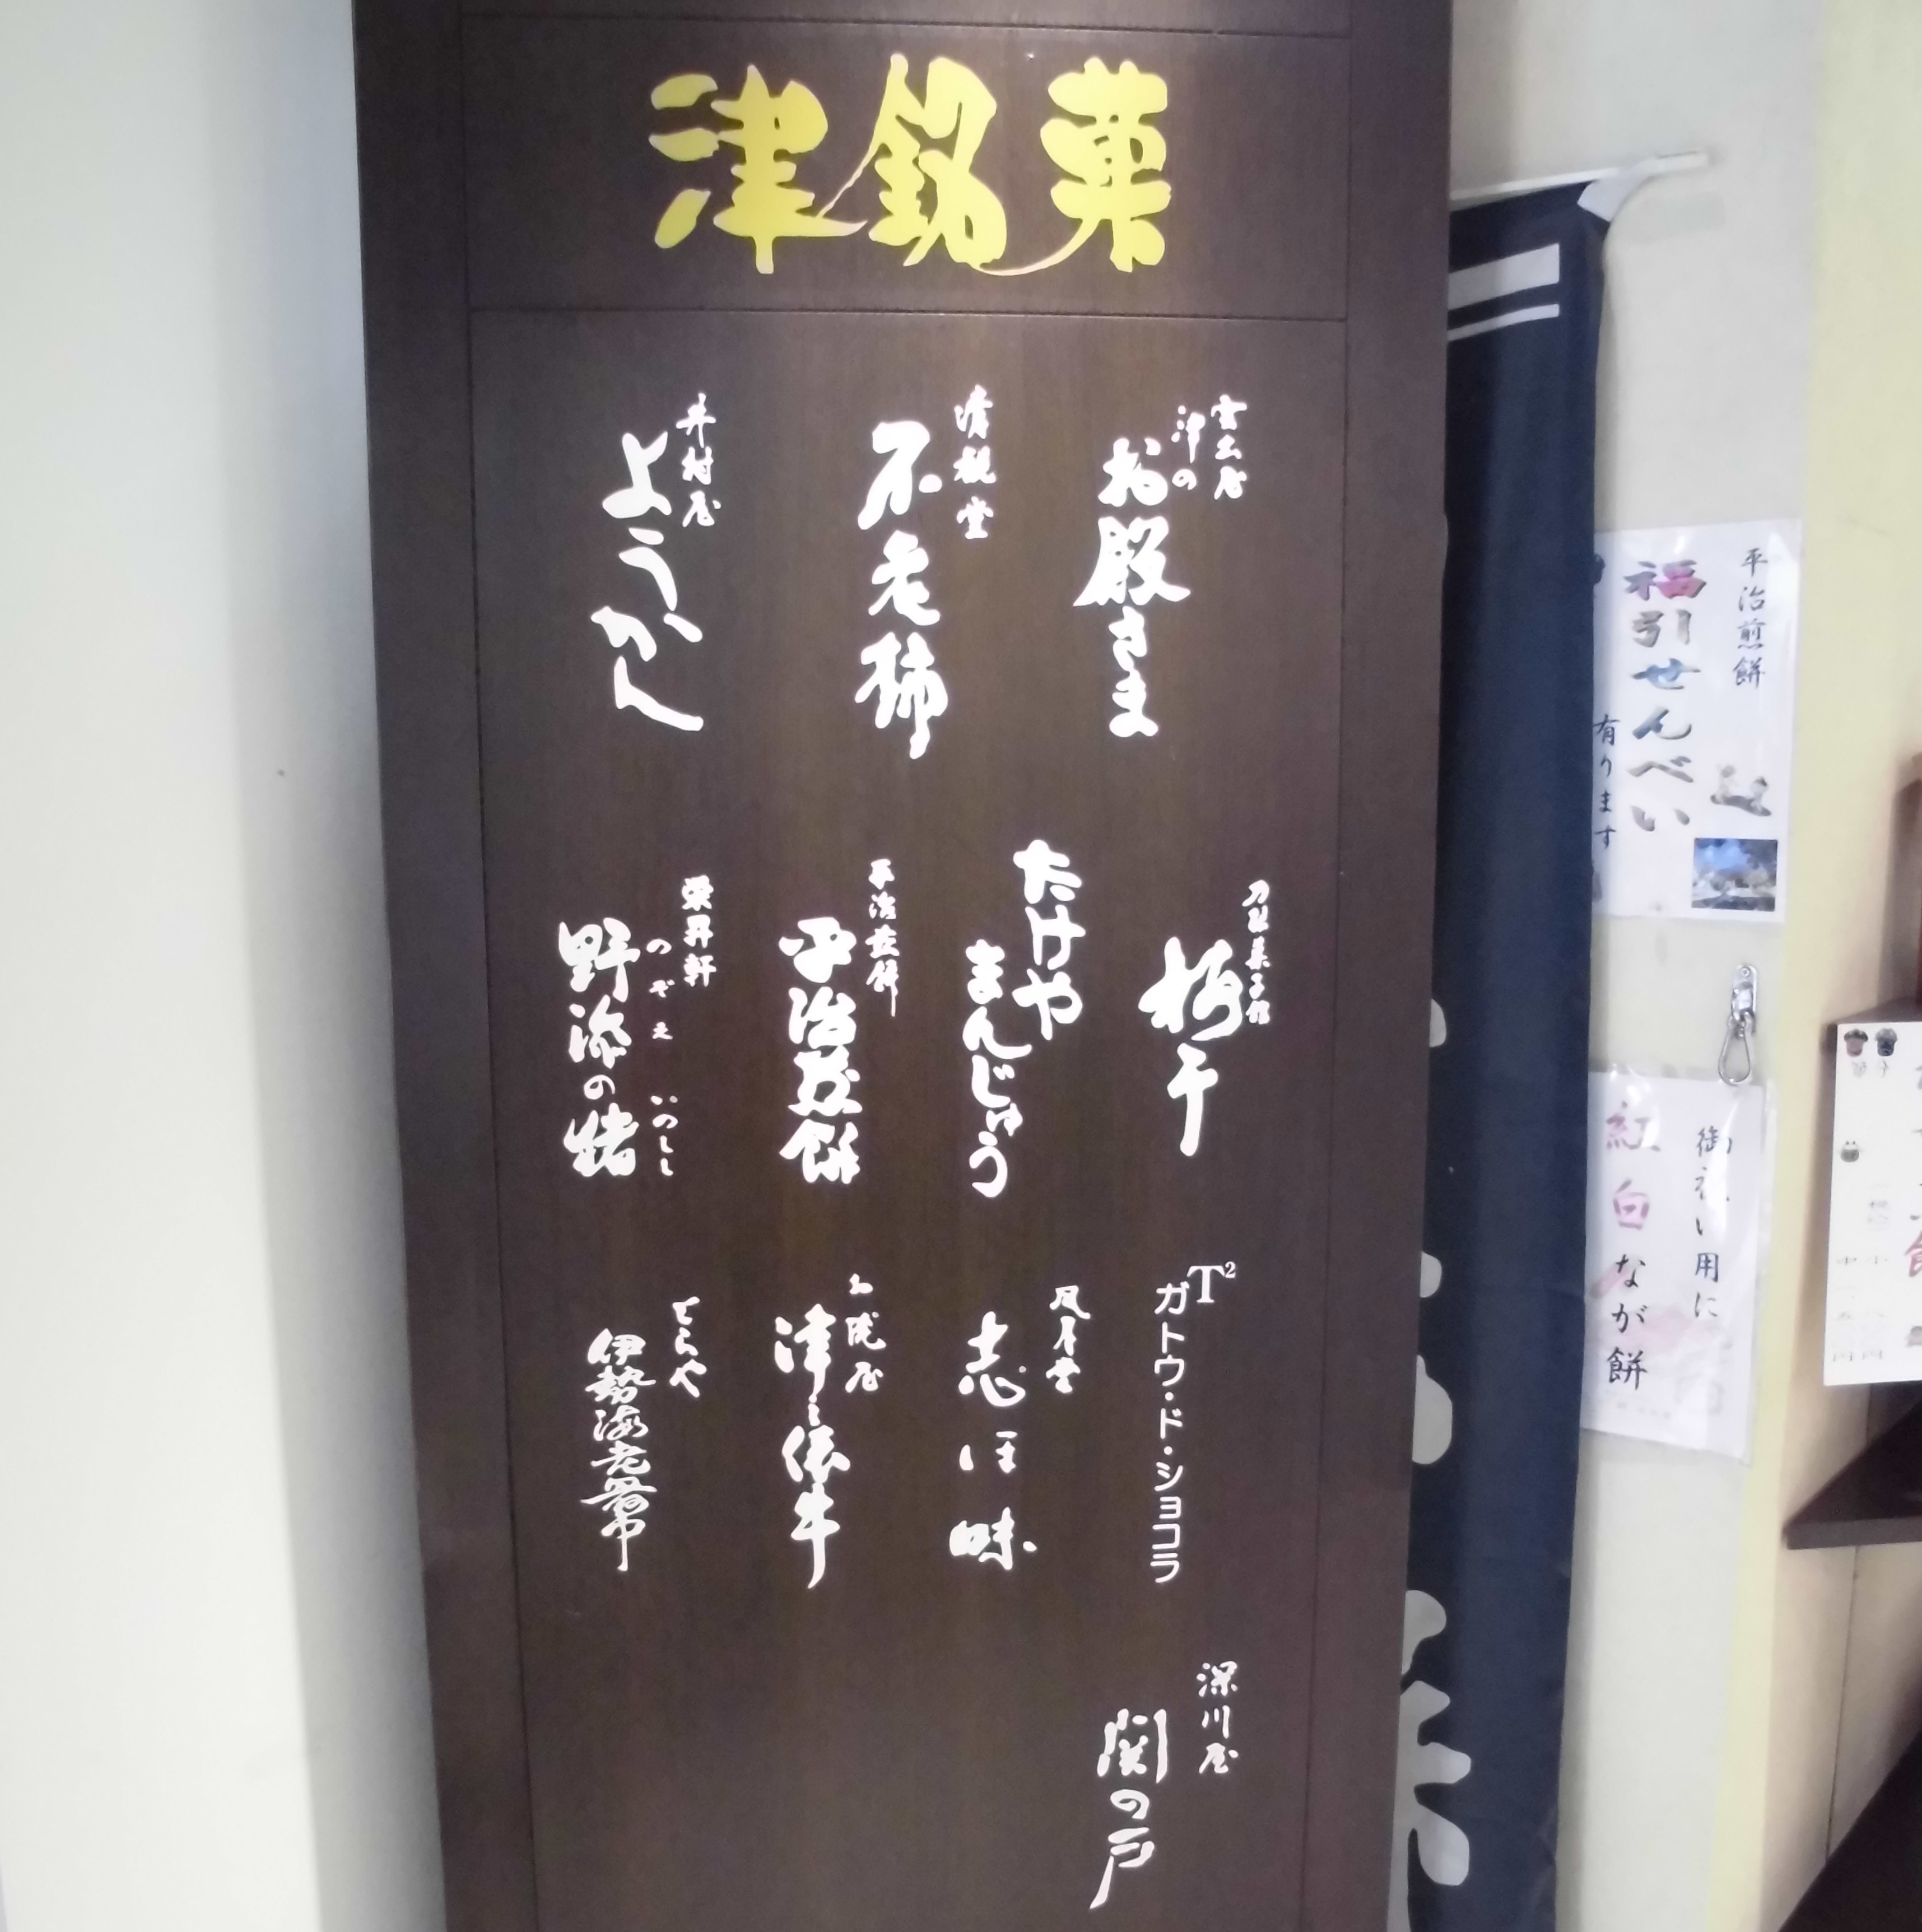 津銘菓
津の
お殿さま
清観堂
不老柿
井村屋
ようかん
たけや
まんじゅう
平治煎餅
平治煎餅
栄昇軒
のぞえ いのしし
野添の猪
T²
ガトウ・ド・ショコラ
風月堂
志ほ味
津之俵牛
とらや
伊勢海老最中
深川屋
関の戸
平治煎餅
福引せんべい
有ります
御祝い用に
紅白ながら餅